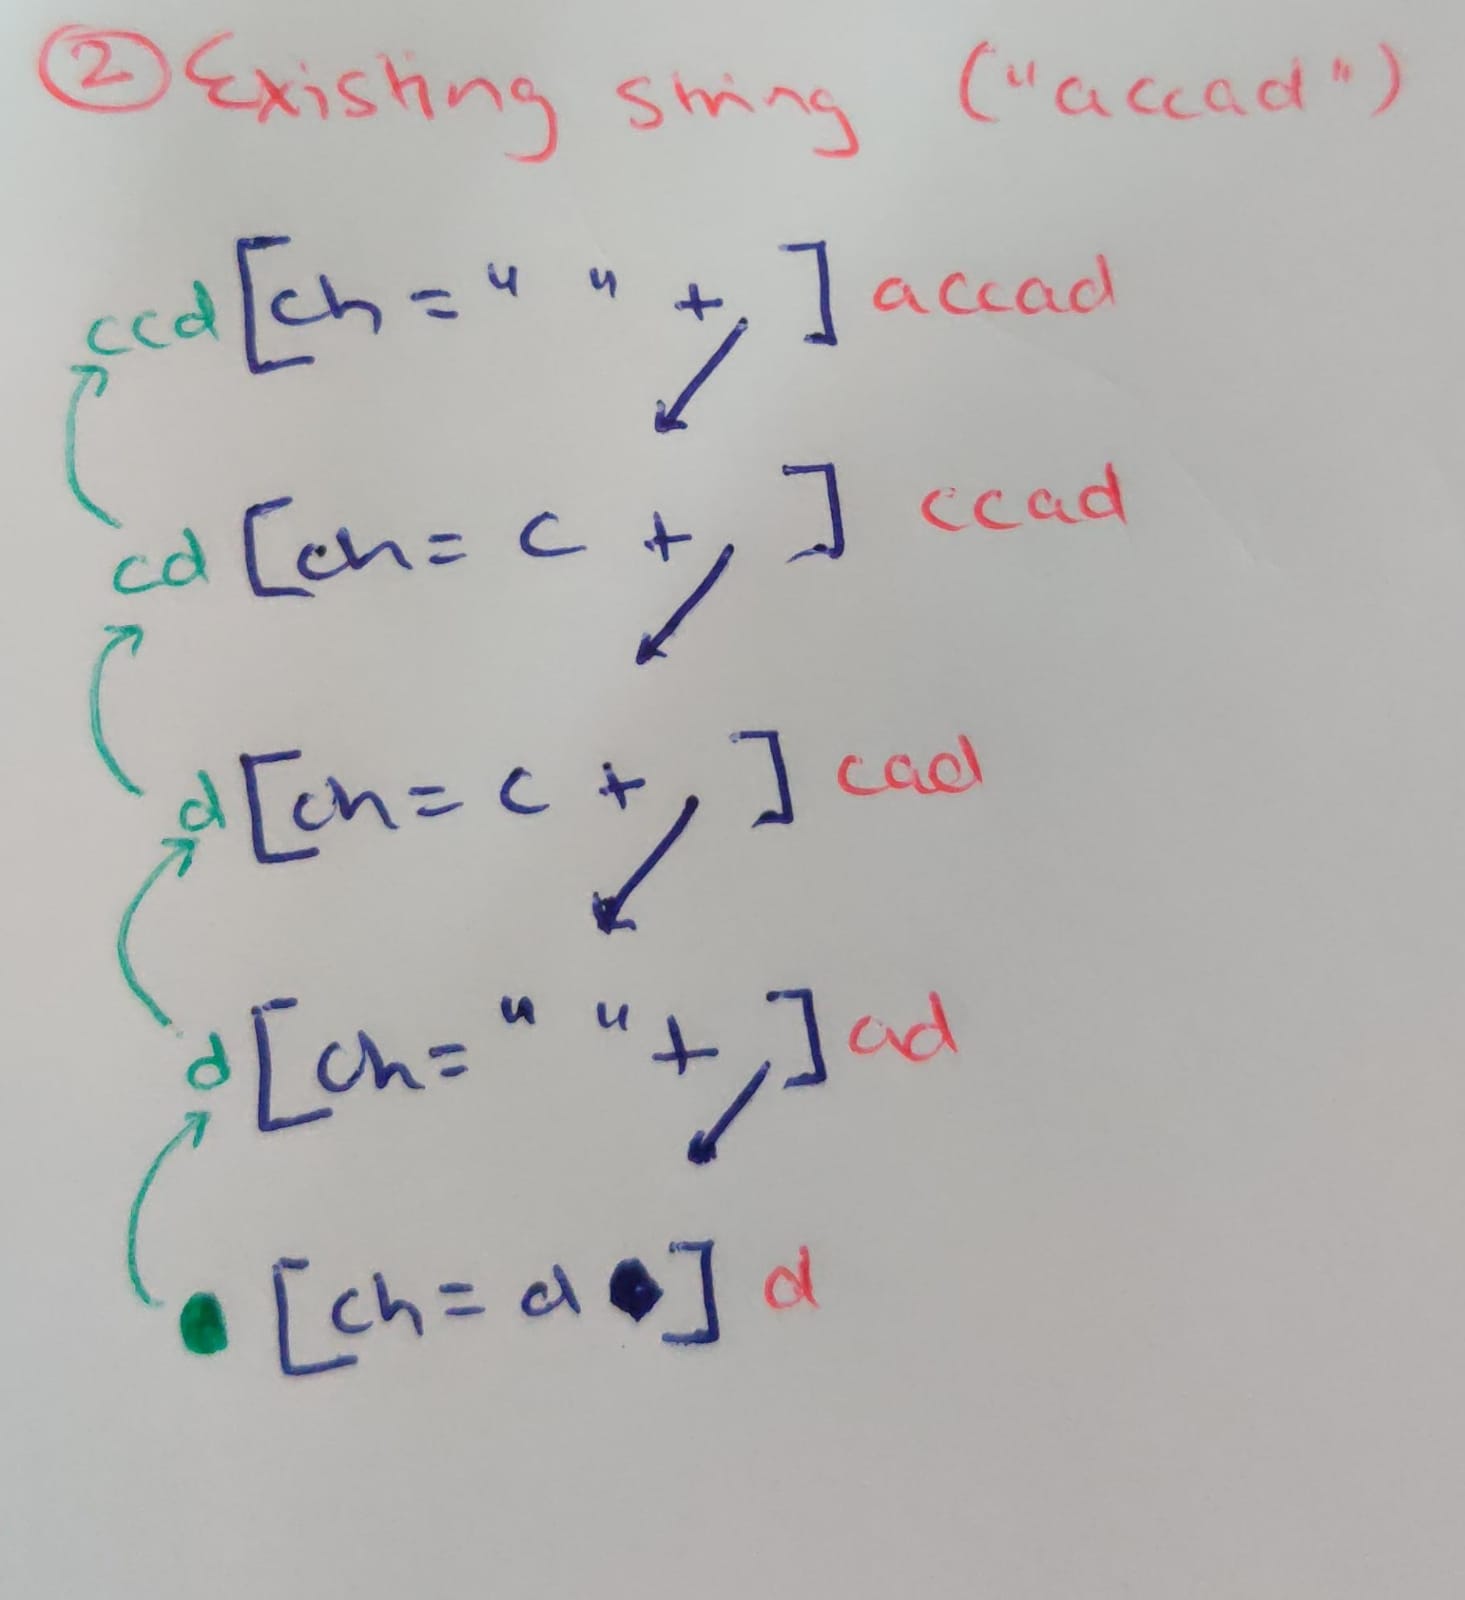 ② Existing string ("accad")
ccd [ch = " " + ] accad
cd [ch = c + ] ccad
d [ch = c + ] cad
d [ch = " " + ] ad
[ch = d ] d